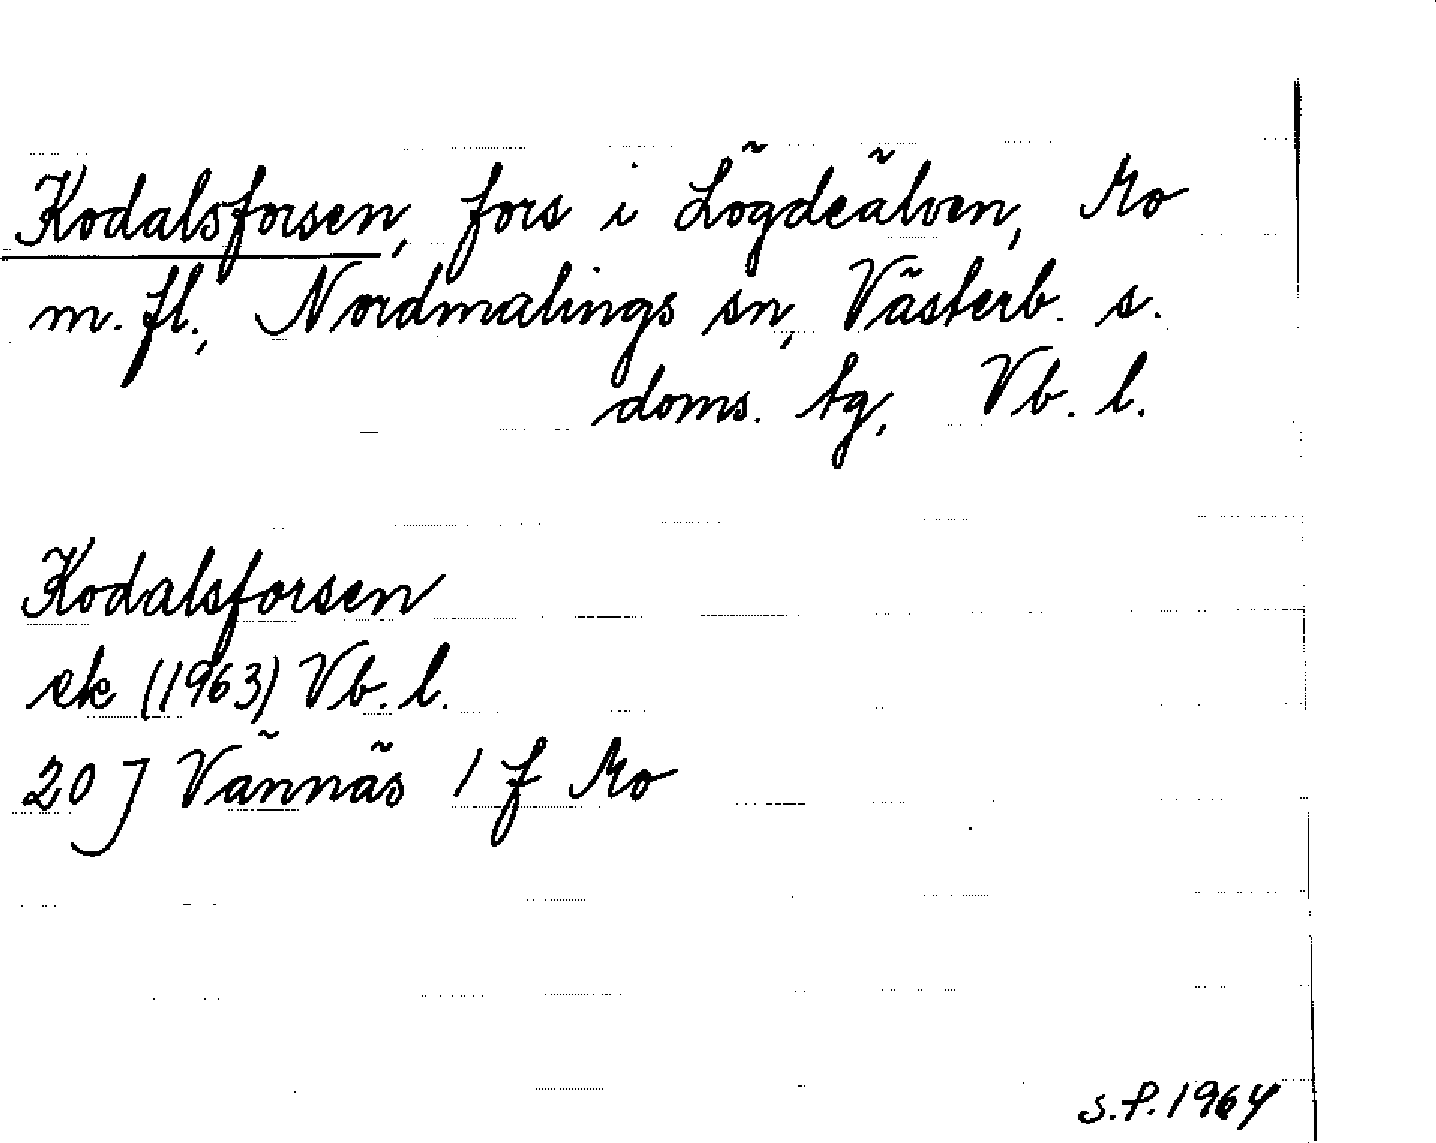 Kodalsforsen, fors i Lögdeälven, Mo
m. fl., Nordmalings sn, Västerb. s.
doms. tg, Vb. l.
Kodalsforsen
ek (1963) Vb. l.
20 J Vännäs 1 f Mo
s.f. 1964